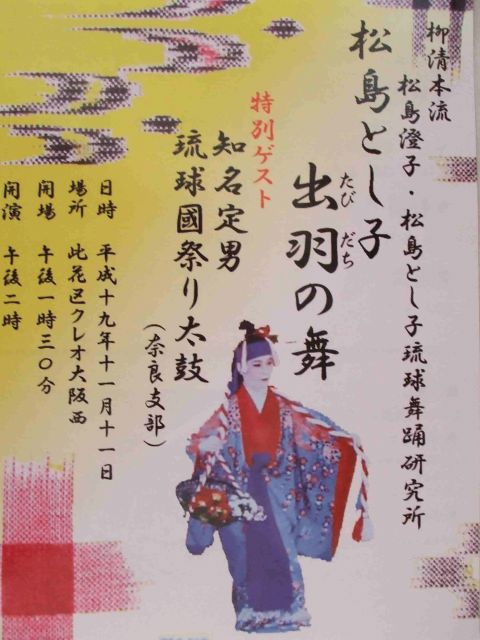 柳清本流
松島澄子・松島とし子琉球舞踊研究所
松島とし子
出羽の舞
たび だち
特別ゲスト
知名定男
琉球國祭り太鼓
(奈良支部)
日時 平成十九年十一月十一日
場所 此花区クレオ大阪西
開場 午後一時三〇分
開演 午後二時